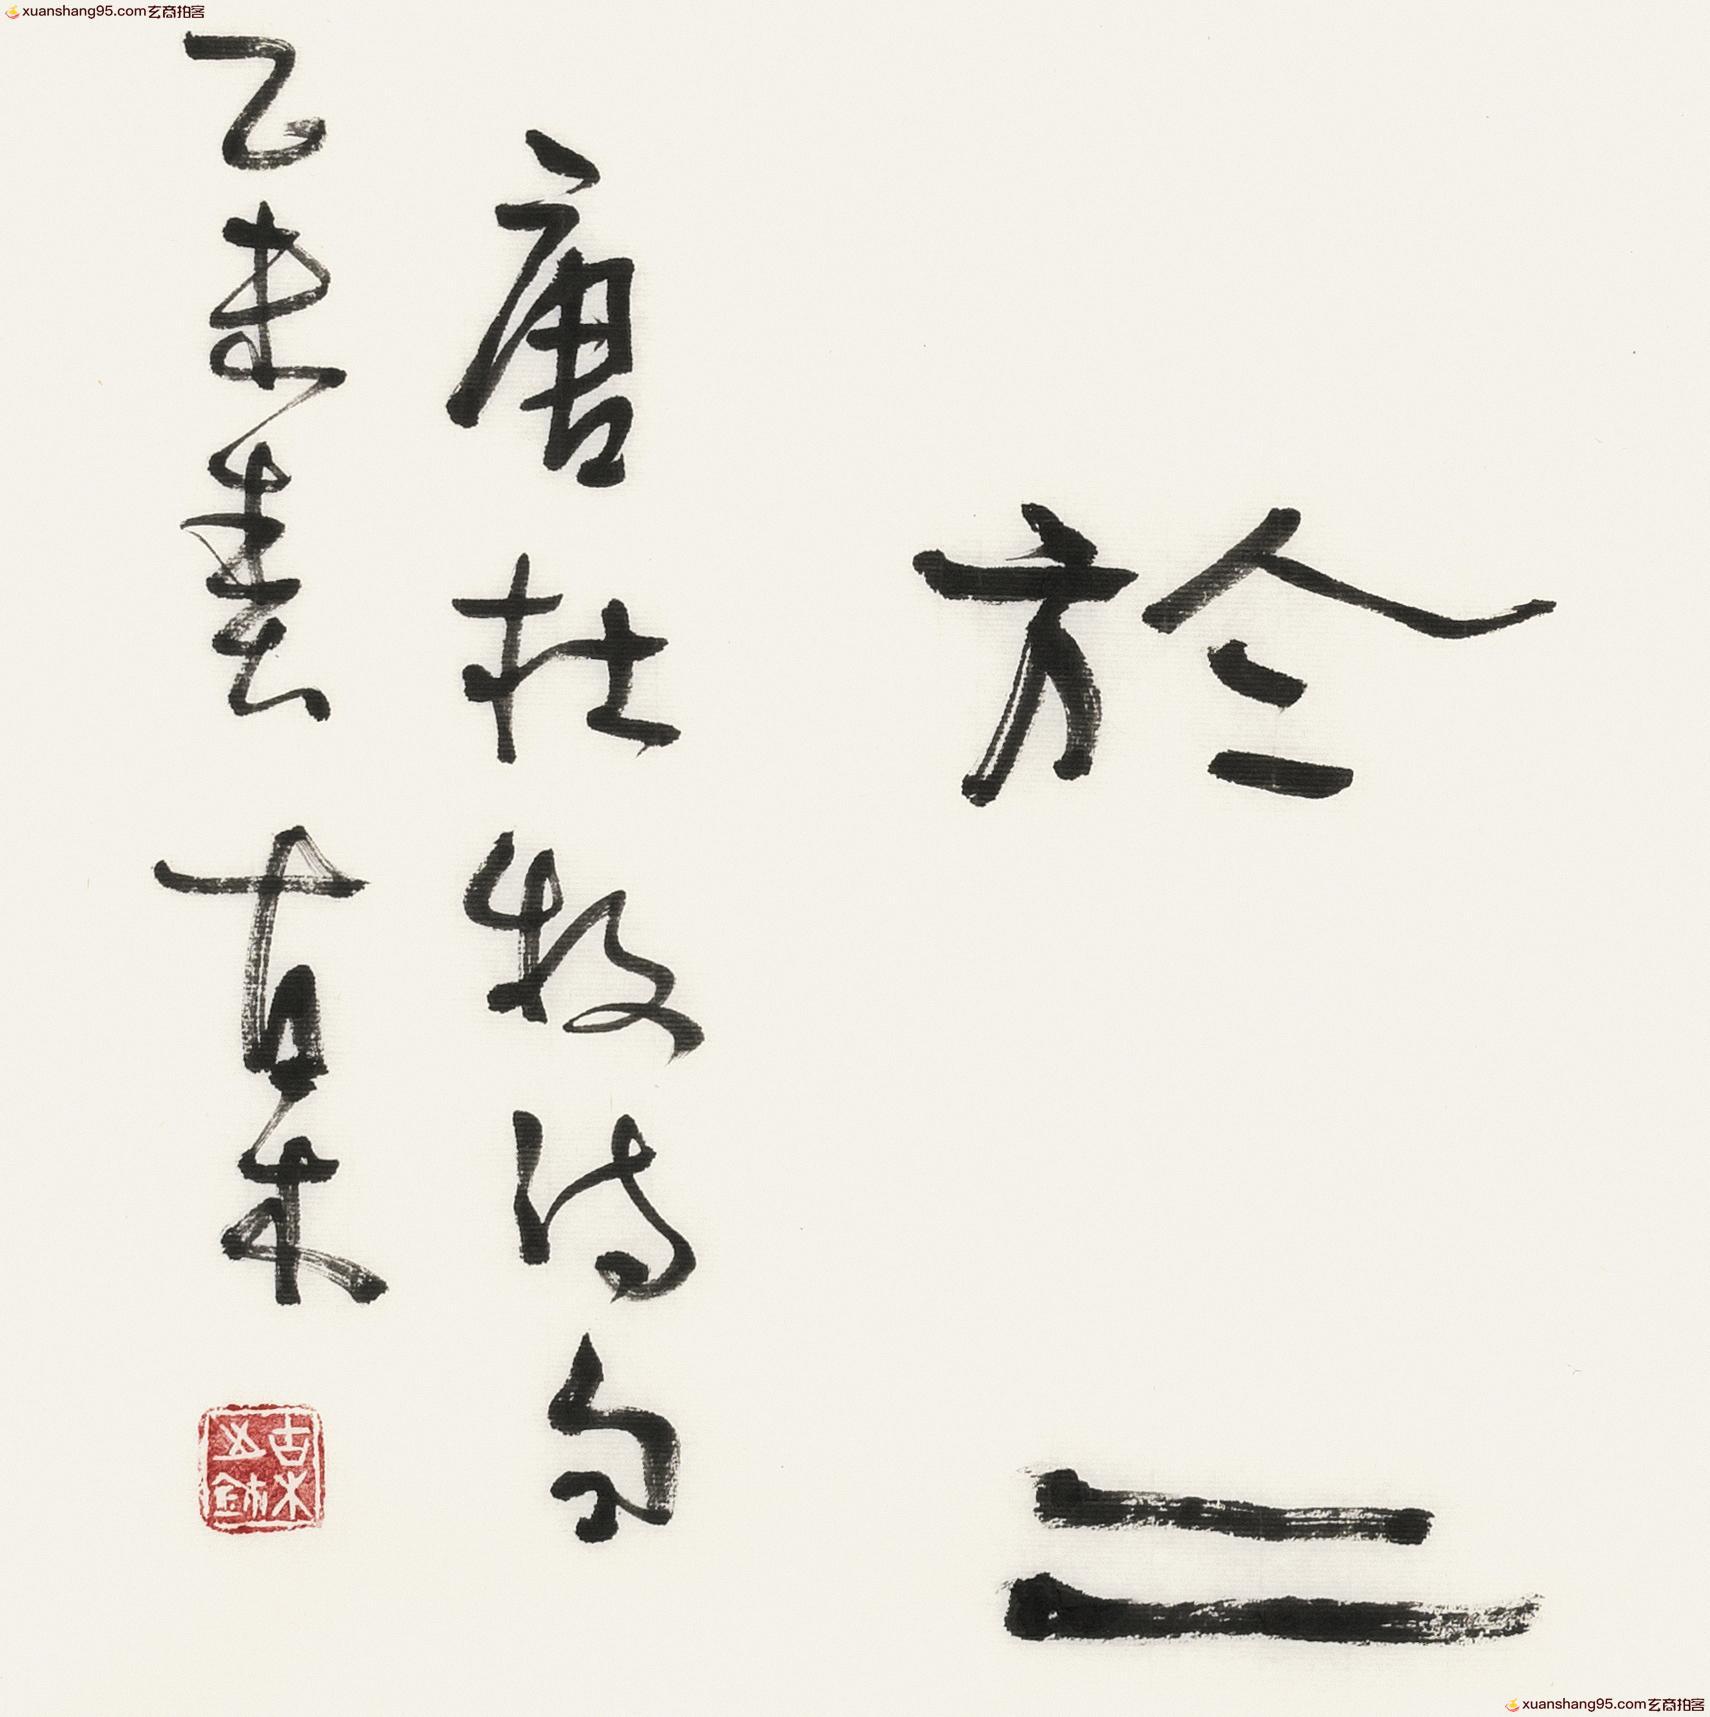 xuanshang95.com玄商拍客
於二
唐杜牧诗句
乙未春古木
古木
xuanshang95.com玄商拍客